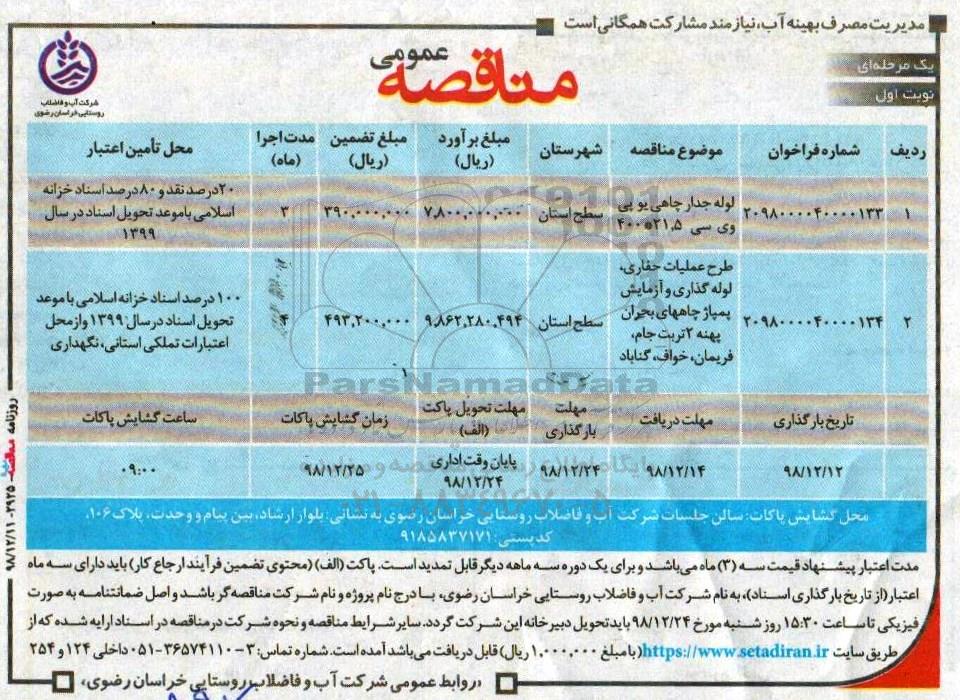 مدیریت مصرف بهینه آب، نیازمند مشارکت همگانی است
یک مرحله‌ای
نوبت اول
مناقصه عمومی
شرکت آب و فاضلاب
روستایی خراسان رضوی
ردیف شماره فراخوان موضوع مناقصه شهرستان مبلغ برآورد (ریال) مبلغ تضمین (ریال) مدت اجرا (ماه) محل تأمین اعتبار
۱ ۲۰۹۸۰۰۰۰۴۰۰۰۰۱۳۳ لوله جدار چاهی یو پی وی سی ۲۱,۵*۴۰۰ سطح استان ۷,۸۰۰,۰۰۰,۰۰۰ ۳۹۰,۰۰۰,۰۰۰ ۳ ۲۰درصد نقد و ۸۰ درصد اسناد خزانه اسلامی با موعد تحویل اسناد در سال ۱۳۹۹
۲ ۲۰۹۸۰۰۰۰۴۰۰۰۰۱۳۴ طرح عملیات حفاری، لوله گذاری و آزمایش پمپاژ چاههای بحران پهنه ۲ تربت جام، فریمان، خواف، گناباد سطح استان ۹,۸۶۲,۲۸۰,۴۹۴ ۴۹۳,۲۰۰,۰۰۰ ۴ ۱۰۰ درصد اسناد خزانه اسلامی با موعد تحویل اسناد در سال ۱۳۹۹ و از محل اعتبارات تملکی استانی، نگهداری
تاریخ بارگذاری مهلت دریافت مهلت بارگذاری مهلت تحویل پاکت (الف) زمان گشایش پاکات ساعت گشایش پاکات
۹۸/۱۲/۱۲ ۹۸/۱۲/۱۴ ۹۸/۱۲/۲۴ پایان وقت اداری ۹۸/۱۲/۲۴ ۹۸/۱۲/۲۵ ۰۹:۰۰
محل گشایش پاکات: سالن جلسات شرکت آب و فاضلاب روستایی خراسان رضوی به نشانی: بلوار ارشاد، بین پیام و وحدت، پلاک ۱۰۶،
کدپستی: ۹۱۸۵۸۳۷۱۷۱
مدت اعتبار پیشنهاد قیمت سه (۳) ماه می‌باشد و برای یک دوره سه ماهه دیگر قابل تمدید است. پاکت (الف) (محتوی تضمین فرآیند ارجاع کار) باید دارای سه ماه
اعتبار (از تاریخ بارگذاری اسناد)، به نام شرکت آب و فاضلاب روستایی خراسان رضوی، با درج نام پروژه و نام شرکت مناقصه‌گر باشد و اصل ضمانتنامه به صورت
فیزیکی تا ساعت ۱۵:۳۰ روز شنبه مورخ ۹۸/۱۲/۲۴ باید تحویل دبیرخانه این شرکت گردد. سایر شرایط مناقصه و نحوه شرکت در مناقصه در اسناد ارایه شده که از
طریق سایت https://www.setadiran.ir (با مبلغ ۱,۰۰۰,۰۰۰ ریال) قابل دریافت می‌باشد آمده است. شماره تماس: ۳-۳۶۵۷۴۱۱۰-۰۵۱ داخلی ۱۲۴ و ۲۵۴
«روابط عمومی شرکت آب و فاضلاب روستایی خراسان رضوی»
روزنامه مناقصه ۲۹۲۵- ۹۸/۱۲/۱۱
ParsNamadData